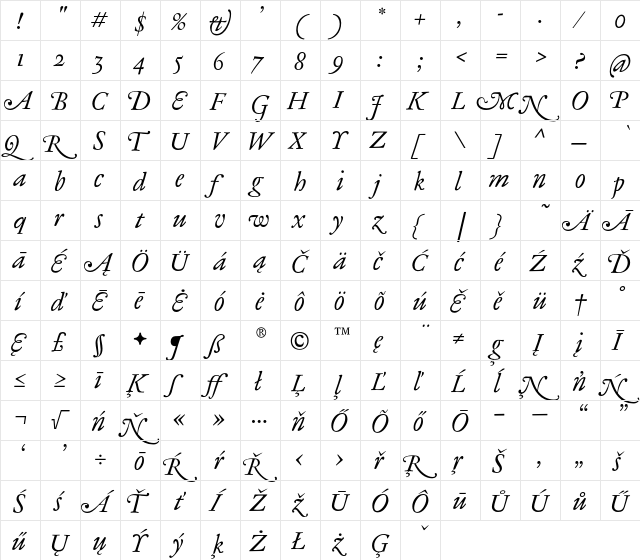 ! " # $ % & ' ( ) * + , - . / 0
1 2 3 4 5 6 7 8 9 : ; < = > ? @
A B C D E F G H I J K L M N O P
Q R S T U V W X Y Z [ \ ] ^ _ `
a b c d e f g h i j k l m n o p
q r s t u v w x y z { | } ~ Ä Ā
ā É Ą Ö Ü á ą Č ä č Ć ć é Ź ź Ď
í ď Ē ē Ė ó ė ô ö õ ú Ě ě ü † °
Ę £ § ✦ ¶ ß ® © ™ ę ¨ ≠ ģ Į į Ī
≤ ≥ ī Ķ ∫ ff ł Ļ ļ Ľ ľ Ĺ ĺ Ņ ň Ń
¬ √ ń Ň « » … ň Ő Õ ő Ō – — “ ”
‘ ’ ÷ ō Ŕ ŕ Ř ‹ › ř Ŗ ŗ Š ‚ „ š
Ś ś Á Ť ť Í Ž ž Ū Ó Ô ū Ů Ú ů Ű
ű Ų ų Ý ý ķ Ż Ł ż Ģ ˇ